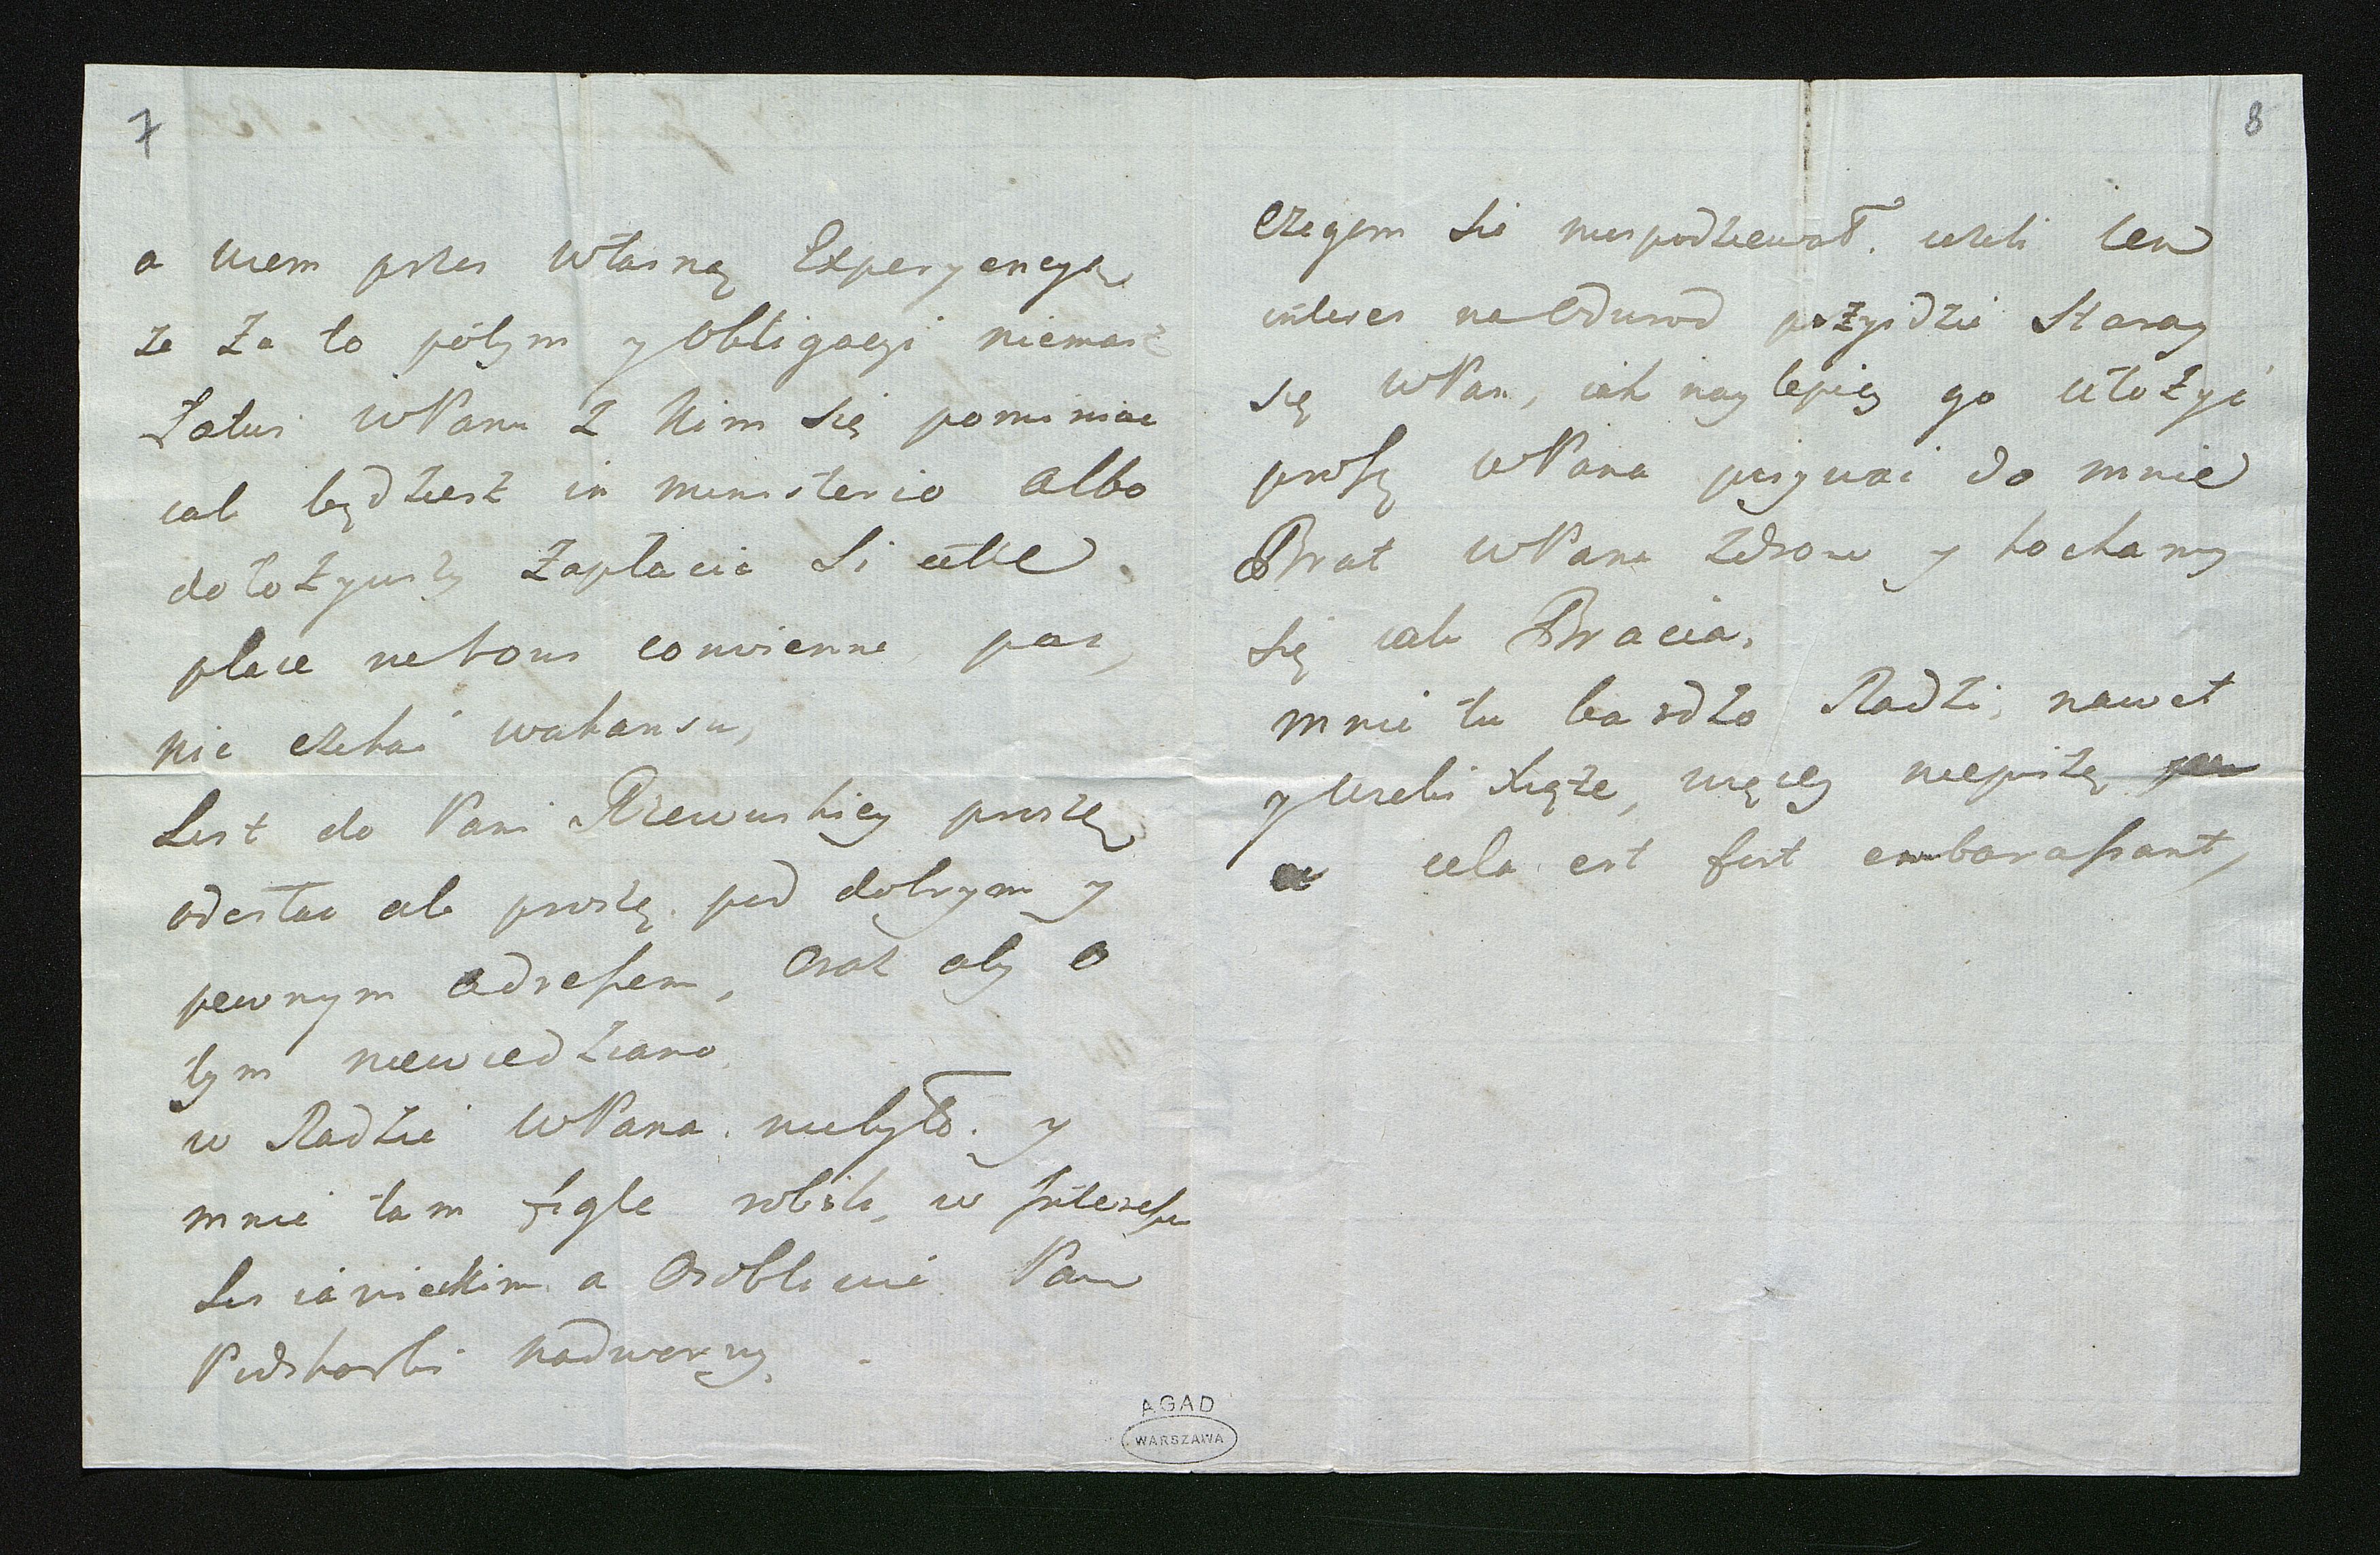 7
a wiem przez własną Experyencyą
że za to potym y obligacyi niemasz
Załuś WPanu z kim się pominiac
iak będziesz in ministerio albo
dołożywszy zapłacić Si cette
place ne vous convienne pas,
nie czekać wakansu,
List do Pani Rzewuskiey proszę
odesłac ale proszę pod dobrym y
pewnym adressem, oraz aby o
tym niewiedziano
w Radzie WPana niebyło. y
mnie tam figle robili, w Interessie
a osobliwie Pan
Podskarbi nadworny.
8
czegom sie niespodziewał. ieżeli ten
interes na Odwrod przyidzie Staray
się WPan, iak naylepiey go ułożyć
proszę WPana pisywai do mnie
Brat WPana zdrow y kochamy
się iak Bracia.
mnie tu bardzo Radzi, nawet
y Wielki Xiąże, więcey niepiszę
cela est fort embarassant,
AGAD
WARSZAWA